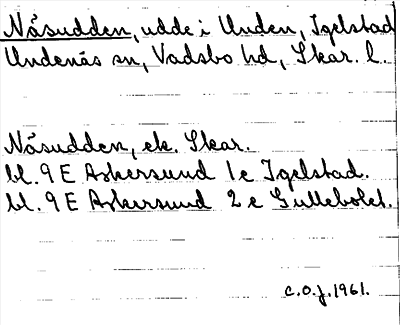 Nåsudden, udde i Unden, Igelstad
Undenäs sn, Vadsbo hd, Skar. l.
Nåsudden, ek. Skar.
bl. 9 E Askersund 1e Igelstad.
bl. 9 E Askersund 2e Gullebolet.
C.O.J. 1961.